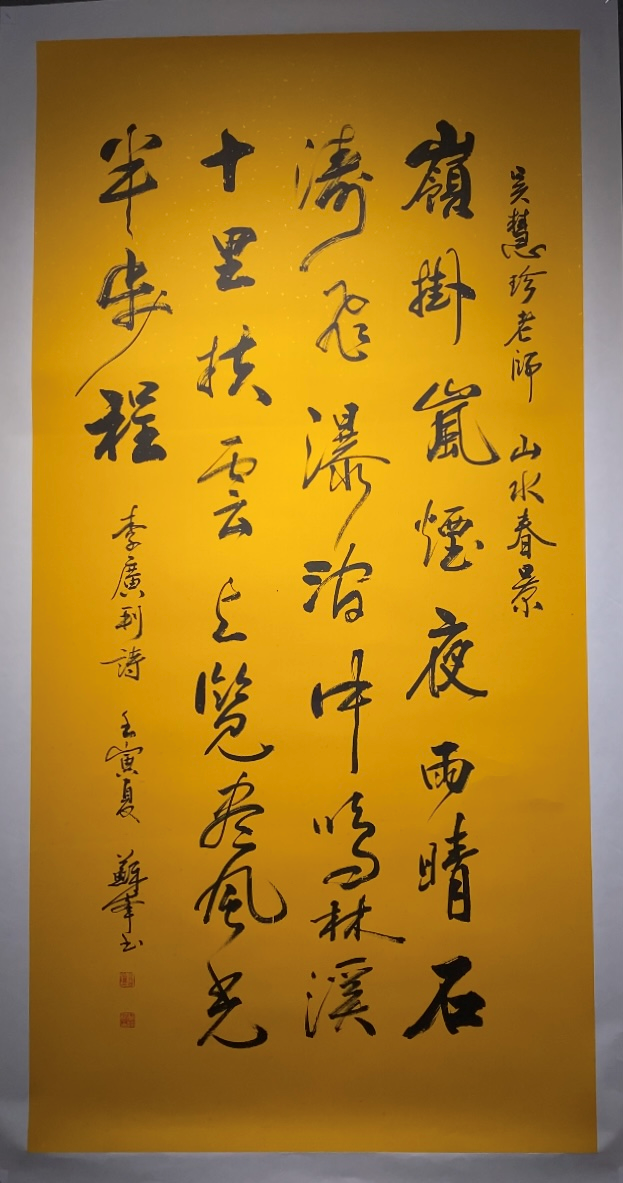 吳慧珍老師 山水春景
嶺掛嵐煙夜雨晴石
濤飛瀑澗中鳴林溪
十里扶雲上覽盡風光
半步程
李廣利詩 壬寅夏 蘇書